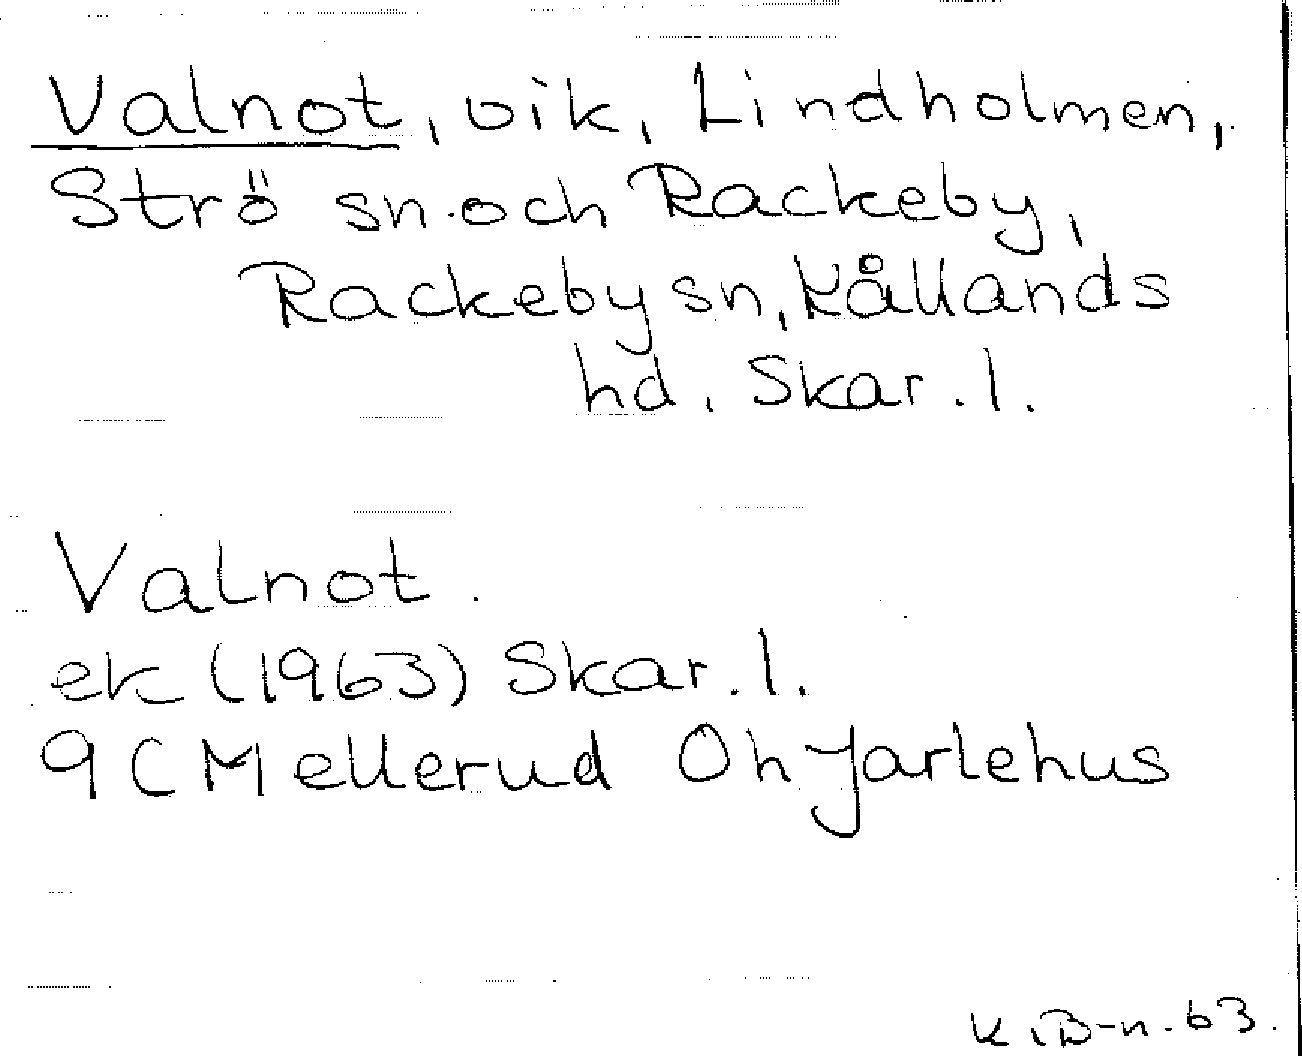 Valnot, vik, Lindholmen,
Strö sn. och Rackeby,
Rackeby sn, Kållands
hd. Skar. l.
Valnot.
ek (1963) Skar. l.
9C Mellerud Oh Jarlehus
K.B-n. 63.